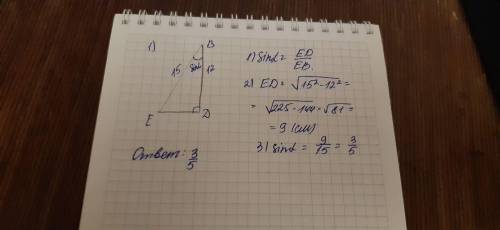 1)
B
15 sinα 12
E D
Ответ: 3/5
1) sinα = ED/EB.
2) ED = √15² - 12² =
= √225 - 144 = √81 =
= 9 (см)
3) sinα = 9/15 = 3/5